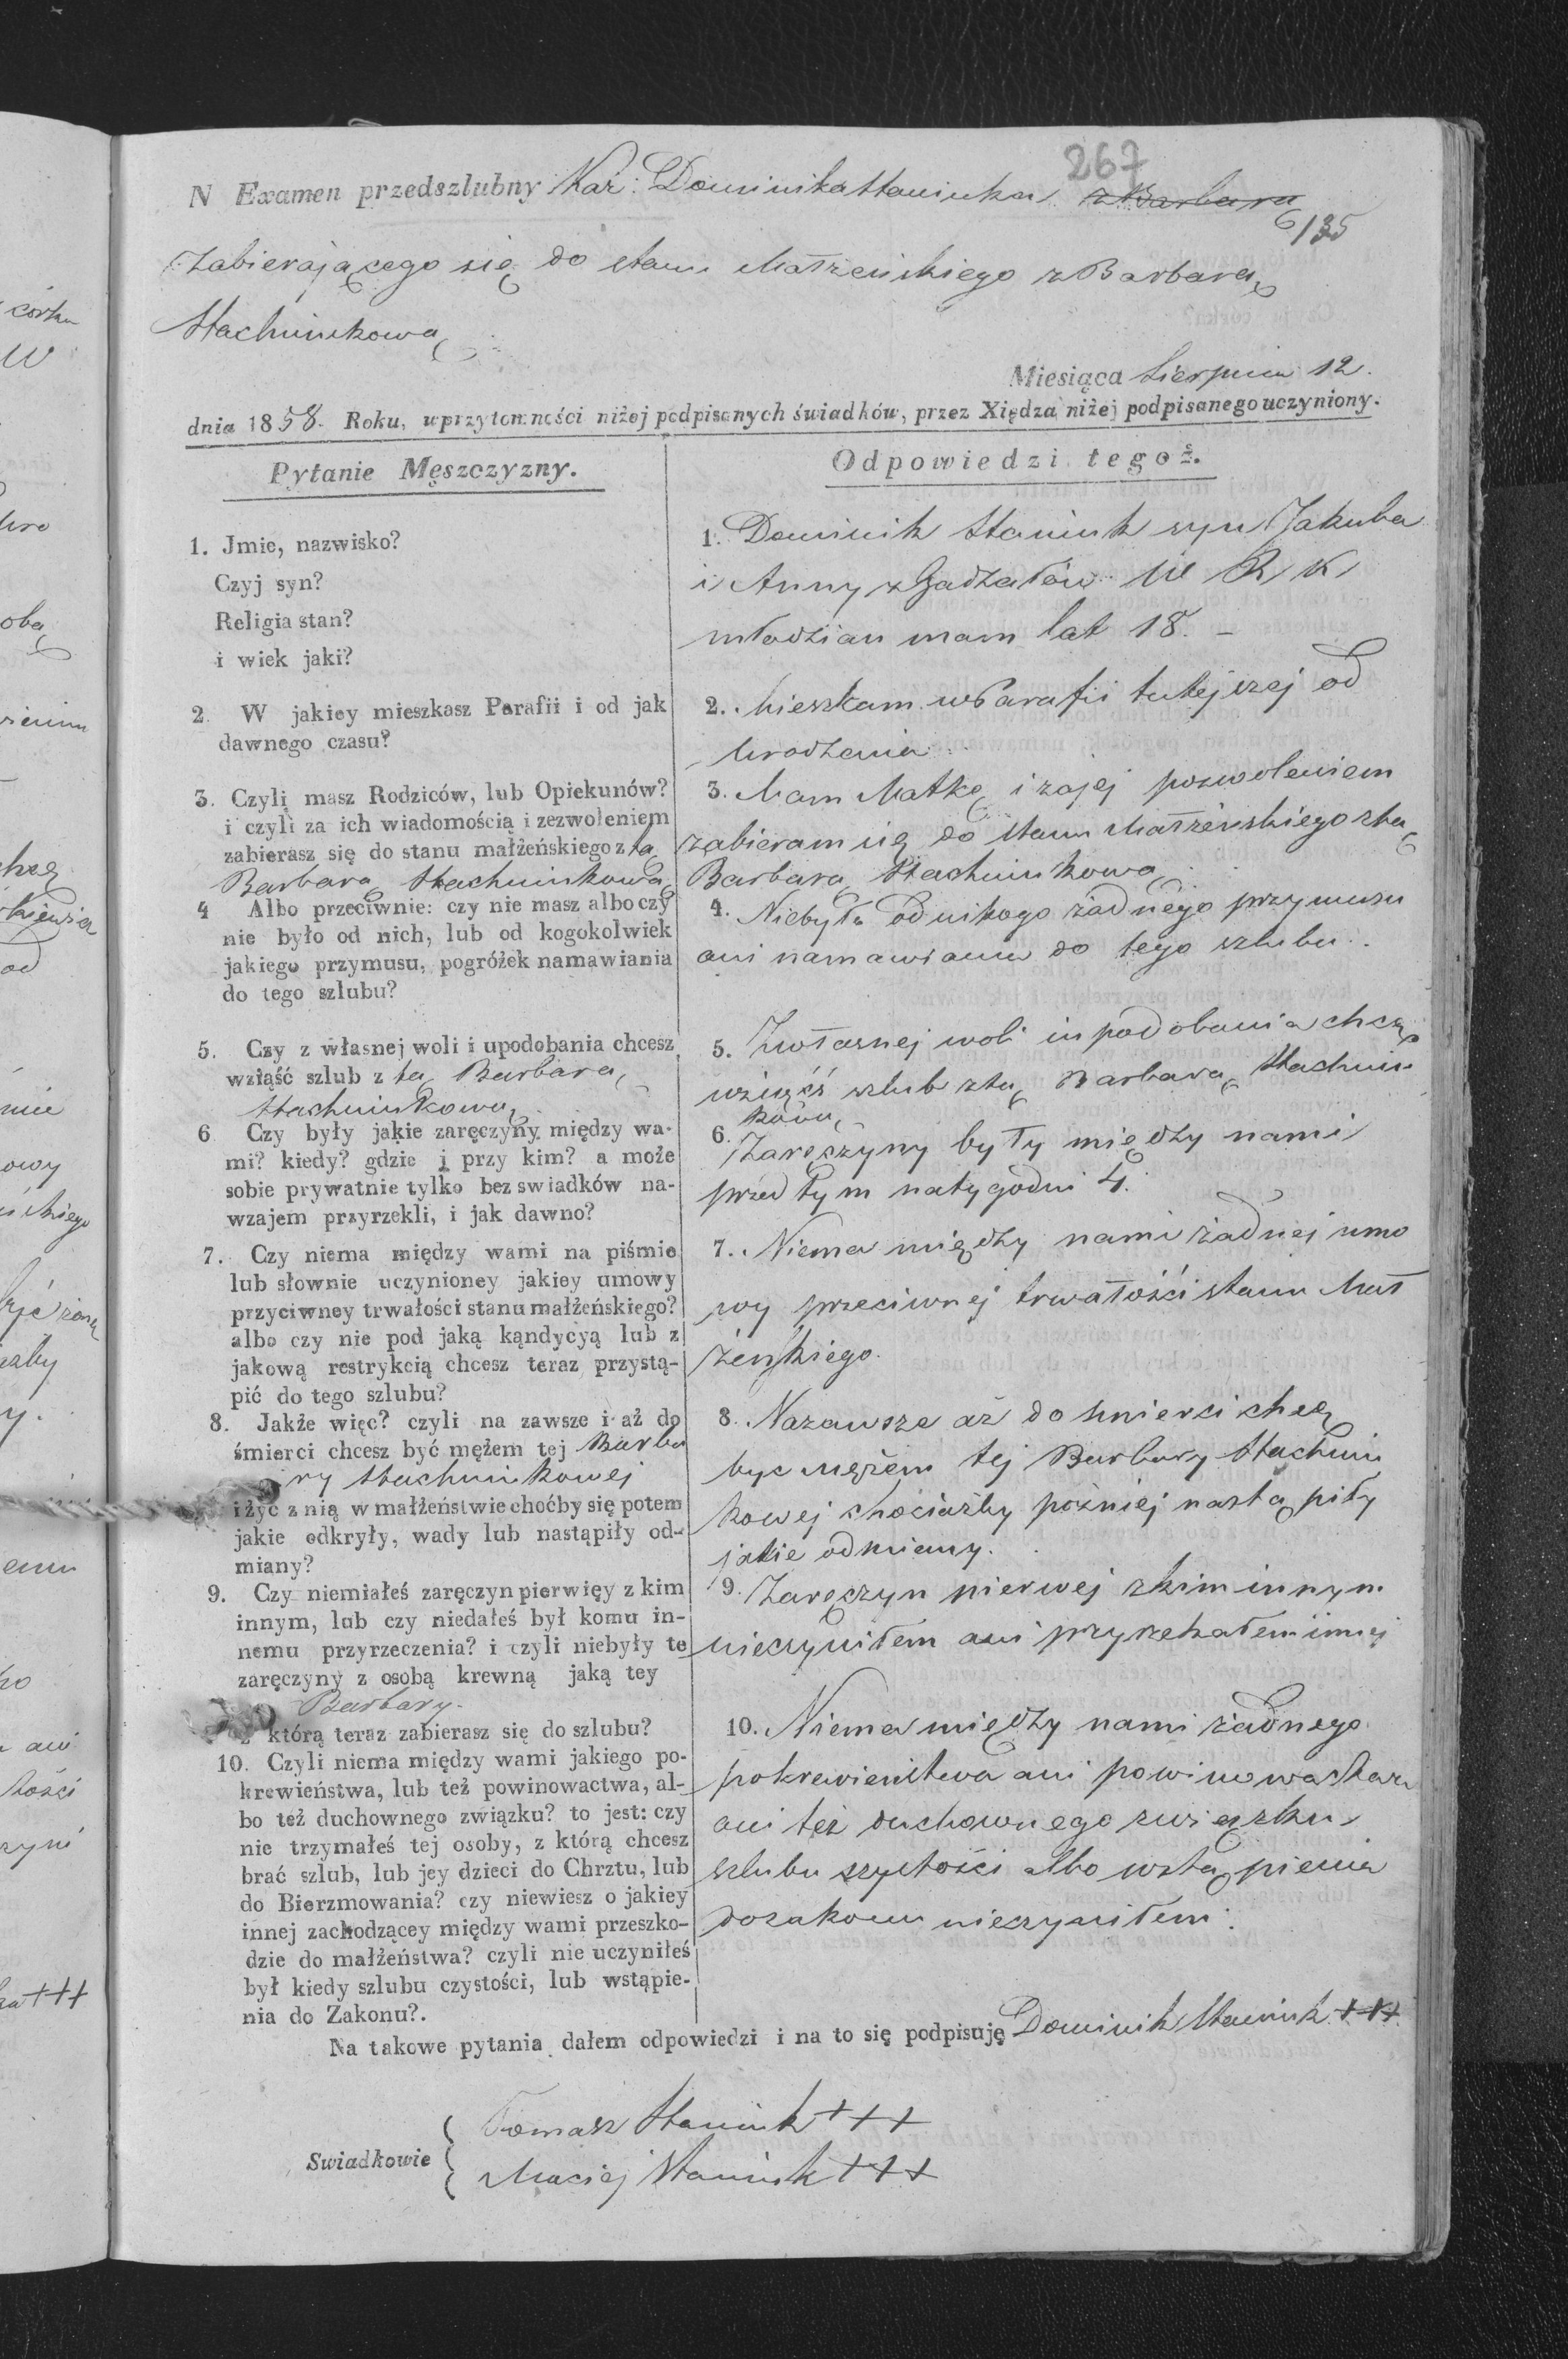 267
N Examen przedszlubny Kaz: Dominika Staniuka z Barbarą
6/35
Zabierającego się do stanu Małżeńskiego z Barbarą
Stachniukową
Miesiąca Sierpnia 12.
dnia 1858. Roku, w przytomności niżej podpisanych świadków, przez Xiędza niżej podpisanego uczyniony.
Pytanie Męszczyzny.
1. Jmie, nazwisko?
Czyj syn?
Religia stan?
i wiek jaki?
2. W jakiey mieszkasz Parafii i od jak
dawnego czasu?
3. Czyli masz Rodziców, lub Opiekunów?
i czyli za ich wiadomością i zezwoleniem
zabierasz się do stanu małżeńskiego z tą
Barbarą Stachniukową
4 Albo przeciwnie: czy nie masz albo czy
nie było od nich, lub od kogokolwiek
jakiego przymusu, pogróżek namawiania
do tego szlubu?
5. Czy z własnej woli i upodobania chcesz
wziąść szlub z tą Barbarą
Stachniukową
6 Czy były jakie zaręczyny między wa-
mi? kiedy? gdzie i przy kim? a może
sobie prywatnie tylko bez swiadków na-
wzajem przyrzekli, i jak dawno?
7. Czy niema między wami na piśmie
lub słownie uczynioney jakiey umowy
przyciwney trwałości stanu małżeńskiego?
albo czy nie pod jaką kąndycyą lub z
jakową restrykcią chcesz teraz przystą-
pić do tego szlubu?
8. Jakże więc? czyli na zawsze i aż do
śmierci chcesz być mężem tej Barba
ry Stachniukowej
i żyć z nią w małżeństwie choćby się potem
jakie odkryły, wady lub nastąpiły od-
miany?
9. Czy niemiałeś zaręczyn pierwięy z kim
innym, lub czy niedałeś był komu in-
nemu przyrzeczenia? i czyli niebyły te
zaręczyny z osobą krewną jaką tey
Barbary.
z którą teraz zabierasz się do szlubu?
10. Czyli niema między wami jakiego po-
krewieństwa, lub też powinowactwa, al-
bo też duchownego związku? to jest: czy
nie trzymałeś tej osoby, z którą chcesz
brać szlub, lub jey dzieci do Chrztu, lub
do Bierzmowania? czy niewiesz o jakiey
innej zachodzącey między wami przeszko-
dzie do małżeństwa? czyli nie uczyniłeś
był kiedy szlubu czystości, lub wstąpie-
nia do Zakonu?.
Odpowiedzi tegoż.
1. Dominik Staniuk syn Jakuba
i Anny z Gadzałów W R K
młodzian mam lat 18. –
2. Mieszkam w Parafii tutejszej od
Urodzenia
3. Mam Matkę i zajej pozwoleniem
zabieram się do stanu Małżeńskiego z tą
Barbarą Stachniukową
4. Niebyło od nikogo żadnego przymusu
ani namawiania do tego szlubu.
5. Zwłasnej woli i upodobania chcę
wziąść szlub z tą Barbarą Stachniu
kową
6. Zaręczyny były między nami
przed tym natygodni 4.
7. Niema między nami żadnej umo
wy przeciwnej trwałości stanu Mał
żeńskiego.
8. Nazawsze aż do śmierci chcę
byc mężem tej Barbary Stachniu
kowej chociażby później nastąpiły
jakie odmiany.
9. Zaręczyn pierwej z kim innym
nieczyniłem ani przyrzekałem innej
10. Niema między nami żadnego
pokrewieństwa ani powinowactwa
ani też duchownego związku
szlubu czystości albo wstąpienia
do zakonu nieczyniłem.
Na takowe pytania dałem odpowiedzi i na to się podpisuję Dominik Staniuk +++
Swiadkowie
Tomasz Staniuk +++
Maciej Staniuk +++